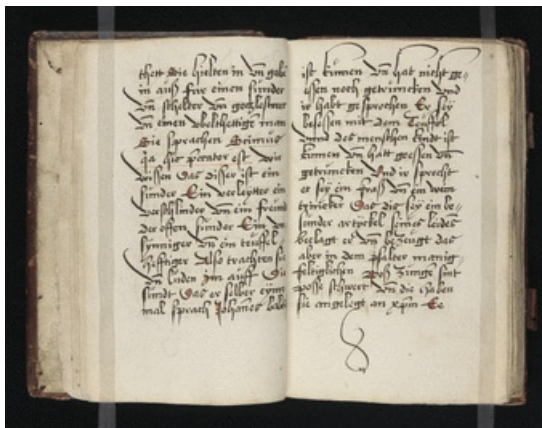 thett Sie hielten in vn̄ gabē
in auß fur einen sunder
vn̄ schelter vnd gotzlestrer
vn̄ einen vbelthettigē man
Sie sprachen Scimus
q̄a hic p̄cator est wir
wissen das disser ist ein
sunder Ein verleytter ein
verschlinder vn̄ ein freund
der offen sunder Ein vn
synniger vn̄ ein teuffel
hefftiger Also trachten sie
vn̄ luden jm auff Die
sundt Das er selber eyn
mal sprach Johānes
ist kumen vn̄ hat nicht ge=
essen noch getruncken vnd
ir habt gesprochen Er sey
besessen mit dem Teuffel
vnnd des menschen kindt ist
kumen vn̄ hatt geessen vn̄
getruncken vnd ir sprecht
er sey ein fraß vn̄ ein wein
trincker Das die sey ein be=
sunder artyckel seines leidēs
beclagt er vn̄ bezeugt das
aber in dem psalter manig=
feltiglichen Boß zunge sint
bosse schwert vn̄ die haben
sie angelegt an xp̄m Er